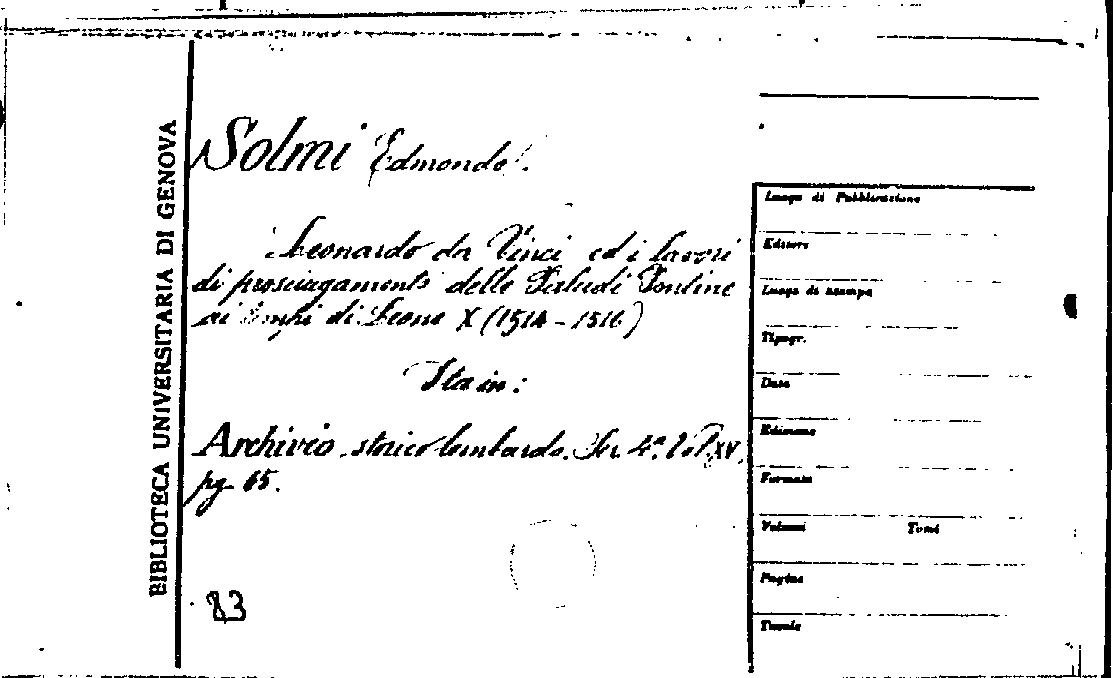 BIBLIOTECA UNIVERSITARIA DI GENOVA
Solmi Edmondo.
Leonardo da Vinci ed i lavori
di prosciugamento delle Paludi Pontine
ai tempi di Leone X (1514-1516)
Sta in:
Archivio storico lombardo. Ser. 4ª. Vol. XV.
pg. 65.
83
Luogo di Pubblicazione
Editore
Luogo di stampa
Tipogr.
Data
Edizione
Formato
Volumi Tomi
Pagine
Tavole